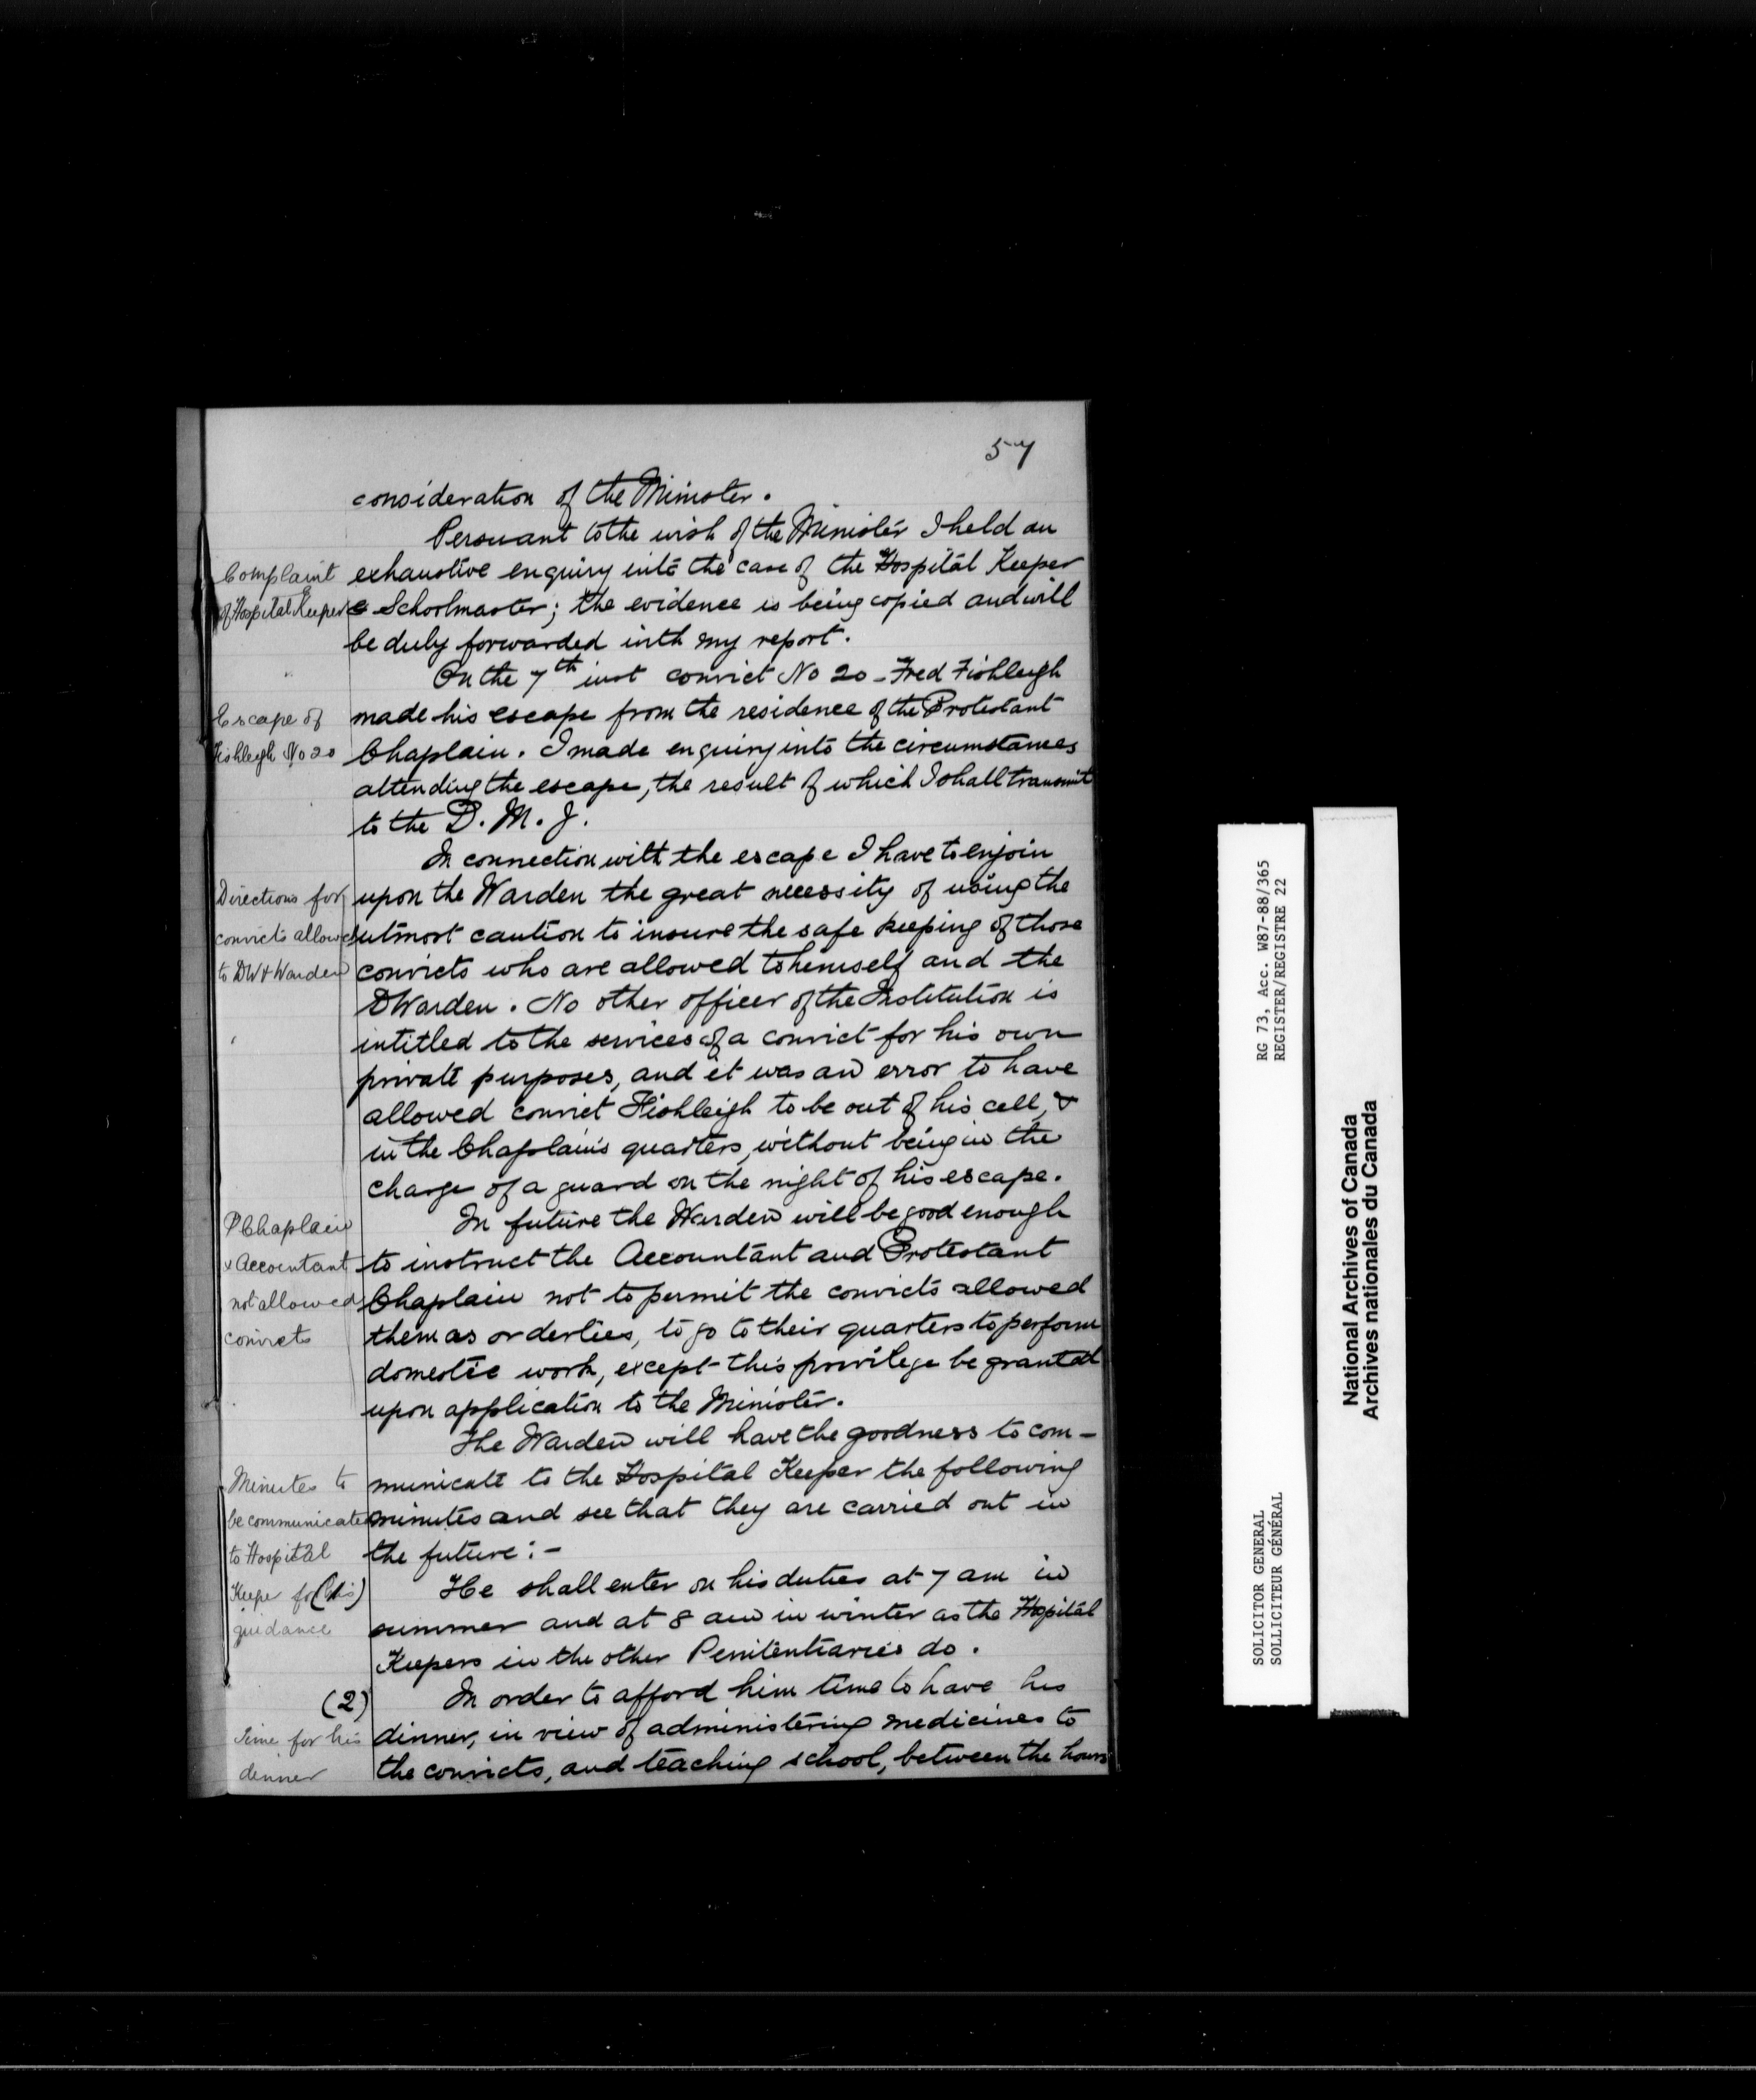 57
consideration of the Minister.
Persuant to the wish of the Minister I held an
Complaint exhaustive enquiry into the case of the Hospital Keeper
of Hospital Keeper & Schoolmaster; the evidence is being copied and will
be duly forwarded with my report.
On the 7th inst convict No 20 - Fred Fishleigh
Escape of made his escape from the residence of the Protestant
Fishleigh No 20 Chaplain. I made enquiry into the circumstances
attending the escape, the result of which I shall transmit
to the D. M. J.
In connection with the escape I have to enjoin
Directions for upon the Warden the great necessity of using the
convicts allowed utmost caution to insure the safe keeping of those
to DW & Warden convicts who are allowed to himself and the
DWarden. No other officer of the Institution is
intitled to the services of a convict for his own
private purposes, and it was an error to have
allowed convict Fishleigh to be out of his cell, &
in the Chaplain's quarters, without being in the
charge of a guard on the night of his escape.
P Chaplain In future the Warden will be good enough
& Accountant to instruct the Accountant and Protestant
not allowed Chaplain not to permit the convicts allowed
convicts them as orderlies, to go to their quarters to perform
domestic work, except this privilege be granted
upon application to the Minister.
The Warden will have the goodness to com-
Minutes to municate to the Hospital Keeper the following
be communicated minutes and see that they are carried out in
to Hospital the future:-
Keeper for (1) his He shall enter on his duties at 7 am in
guidance summer and at 8 am in winter as the Hospital
Keepers in the other Penitentiaries do.
(2) In order to afford him time to have his
Time for his dinner, in view of administering medicines to
dinner the convicts, and teaching school, between the hours
RG 73, Acc. W87-88/365
REGISTER/REGISTRE 22
SOLICITOR GENERAL
SOLLICITEUR GÉNÉRAL
National Archives of Canada
Archives nationales du Canada